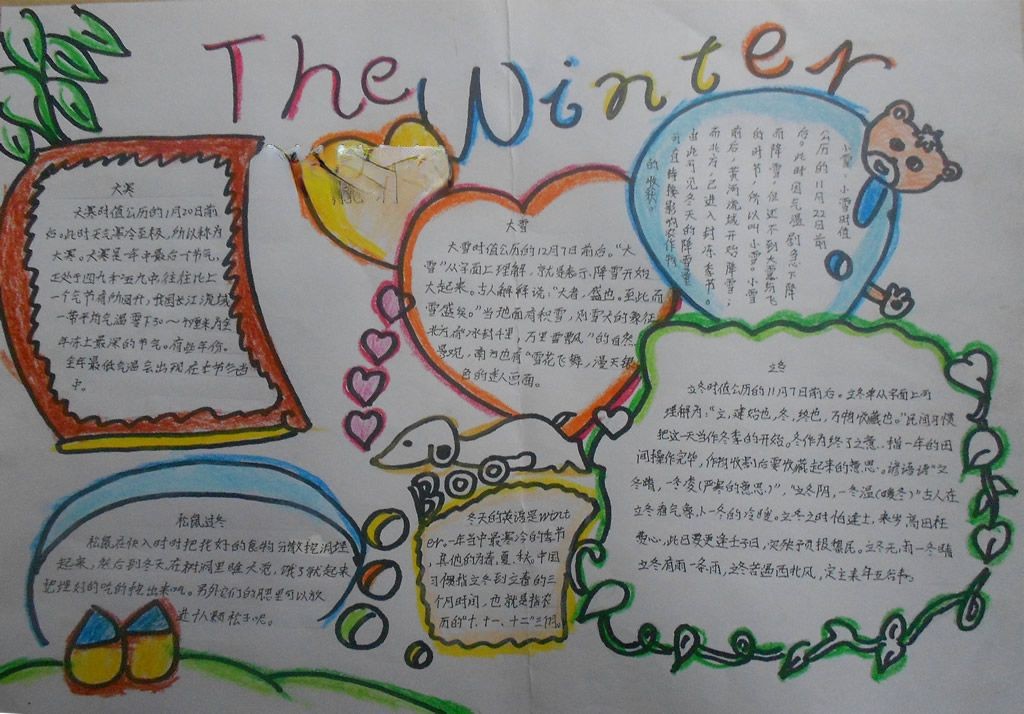 The Winter
大寒
大寒时值公历的1月20日前
后。此时天气寒冷至极，所以称为
大寒。大寒是一年中最后一节气，
正处于四九末五九中，往往比上
一个气节有所回升，我国长江流域
一带平均气温零下30～
年冻土最深的节气。有些年份。
全年最低气温会出现在本节气当
中。
大雪
大雪时值公历的12月7日前后。“大
雪”从字面上理解，就是表示，降雪开始
大起来。古人解释说：“大者，盛也。至此而
雪盛矣。”当地面有积雪，
北方有“冰封千里，万里雪飘”的自然
景观，南方也有“雪花飞舞，漫天银
色的迷人画面。
小雪，小雪时值
公历的11月22日前
后。此时因气温剧急下降
而降雪，但还不到大雪纷飞
的时节，所以叫小雪。小雪
前后，黄河流域开始降雪；
而北方，已进入封冻季节。
由此可见冬天的降雪量
可直接影响农作物
的收获。
立冬
立冬时值公历的11月7日前后。立冬单从字面上而
理解为：“立，建始也，冬，终也，万物收藏也。”民间习惯
把这一天当作冬季的开始。冬作为终了之意，指一年的田
间操作完毕，作物收割后要收藏起来的意思。谚语讲“立
冬晴，一冬凌(严寒的意思)”，“立冬阴，一冬温(暖冬)”古人在
立冬看气象小一冬的冷暖。立冬之时怕逢壬，来岁高田枉
费心，此日更逢壬子日，灾殃预报损民。立冬无雨一冬晴
立冬有雨一条雨，立冬若遇西北风，定主来年五谷丰。
松鼠过冬
松鼠在秋入时时把找好的食物分散挖洞埋
起来，然后到冬天在树洞里睡大觉，饿了就起来
把埋好的吃的挖出来吃。另外它们的腮里可以放
进十八颗松子呢。
BOO
冬天的英语是Wint
er。一年当中最寒冷的季节
，其他的为春、夏、秋。中国
习惯指立冬到立春的三
个月时间，也就是指农
历的“十、十一、十二”三个月。